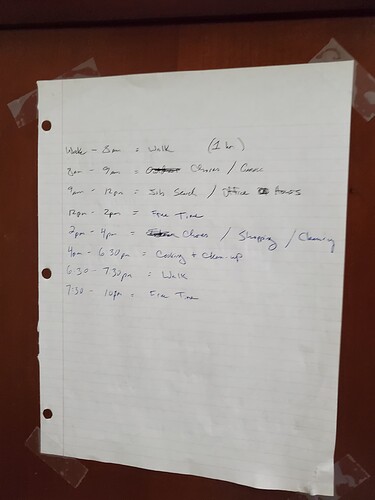 Wake - 8am = Walk (1 hr)
8am - 9am = Chores /
9am - 12pm = Job Search / Office
12pm - 2pm = Free Time
2pm - 4pm = Chores / Shopping / Cleaning
4pm - 6:30pm = Cooking + Clean-up
6:30 - 7:30pm = Walk
7:30 - 10pm = Free Time